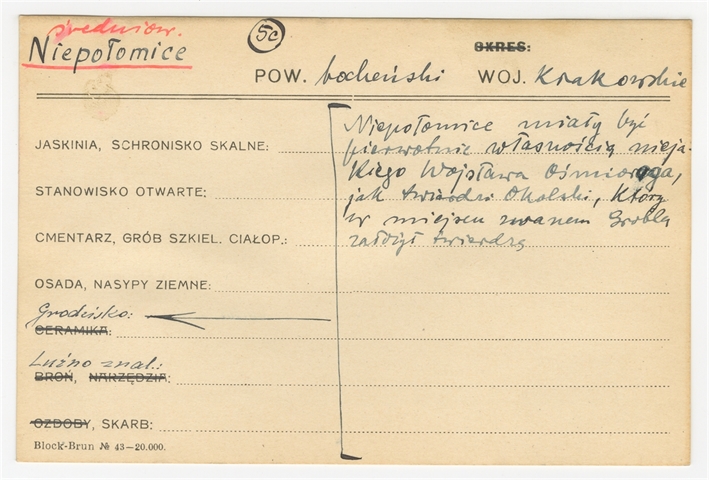 średniow.
Niepołomice
5c
OKRES:
POW. bocheński WOJ. Krakowskie
JASKINIA, SCHRONISKO SKALNE:
STANOWISKO OTWARTE:
CMENTARZ, GRÓB SZKIEL. CIAŁOP.:
OSADA, NASYPY ZIEMNE:
Grodzisko:
CERAMIKA:
Luźno znal.:
BROŃ, NARZĘDZIA:
OZDOBY, SKARB:
Block-Brun № 43—20.000.
Niepołomice miały być
pierwotnie własnością nieja-
kiego Wojsława Ośmioroga,
jak twierdzi Okolski, który
w miejscu zwanem Grobla
założył twierdzę